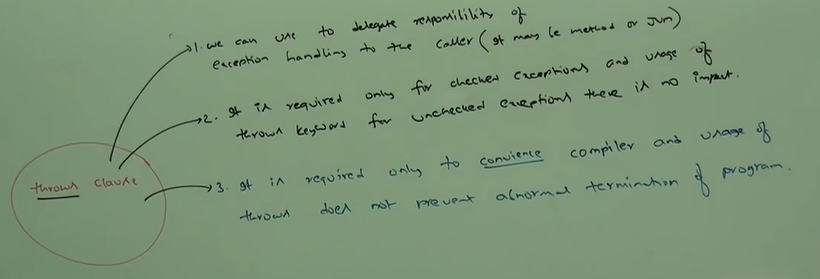 1. we can use to delegate responsibility of
exception handling to the caller (It may be method or Jvm)
2. It is required only for checked exceptions and usage of
throws keyword for unchecked exceptions there is no impact.
throws clause
3. It is required only to convience compiler and usage of
throws does not prevent abnormal termination of program.